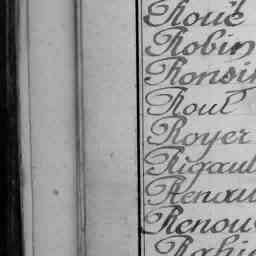 Roué
Robin
Ronsin
Roul
Royer
Rigaul
Renau
Renou
Rahi